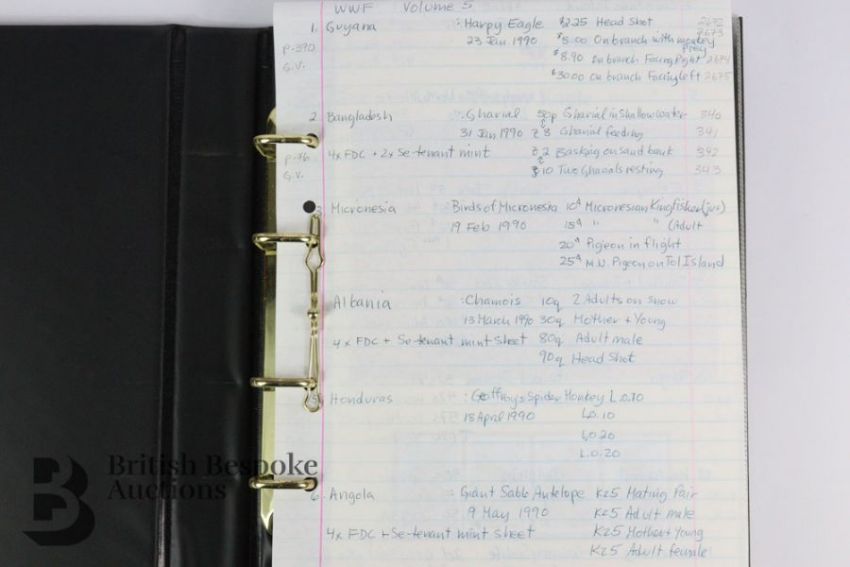 WWF Volume 5
1. Guyana : Harpy Eagle $2.25 Head Shot 2672
P-390 23 Jan 1990 $5.00 On branch with monkey prey 2673
G.V. $8.90 On branch Facing Right 2674
$30.00 On branch Facing left 2675
2. Bangladesh : Gharial 50p Gharial in shallow water 340
31 Jan 1990 8 Gharial feeding 341
P-76 4x FDC + 2x Se-tenant mint 2 Basking on sand bank 342
G.V. 10 Two Gharials resting 343
3. Micronesia Birds of Micronesia 10¢ Micronesian Kingfisher (juv)
19 Feb 1990 15¢ " " (Adult
20¢ Pigeon in flight
25¢ M.N. Pigeon on Tol Island
Albania : Chamois 10q 2 Adults on snow
13 March 1990 30q Mother + Young
4x FDC + Se-tenant mint Sheet 80q Adult male
90q Head Shot
5. Honduras : Geoffroy's Spider Monkey L0.10
18 April 1990 L0.10
L0.20
L0.20
6. Angola : Giant Sable Antelope Kz5 Mating Pair
9 May 1990 Kz5 Adult male
4x FDC + Se-tenant mint sheet Kz5 Mother + Young
Kz5 Adult female
British Bespoke
Auctions